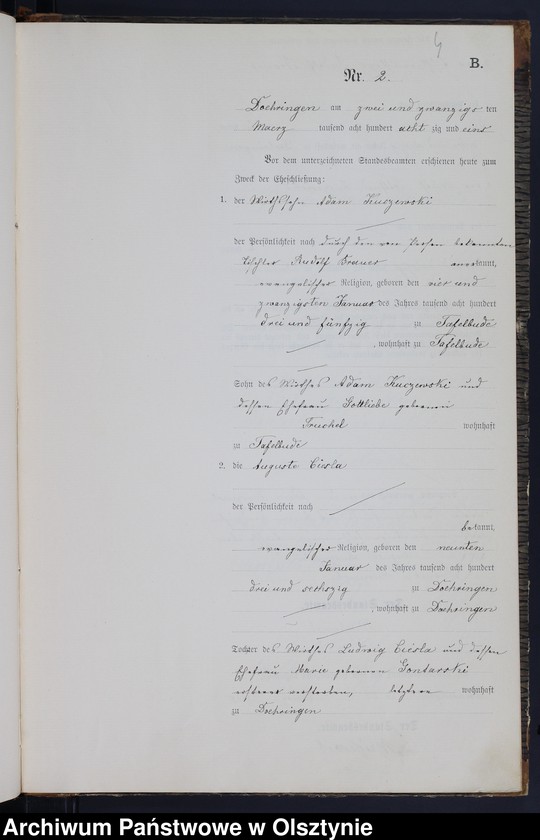 4
B.
Nr. 2.
Doehringen am zwei und zwanzigs ten
Maerz tausend acht hundert acht zig und eins
Vor dem unterzeichneten Standesbeamten erschienen heute zum
Zweck der Eheschließung:
1. der Wirthssohn Adam Kuczewski
der Persönlichkeit nach durch den von Person bekannten
Tischler Rudolf anerkannt,
evangelischer Religion, geboren den vier und
zwanzigsten Januar des Jahres tausend acht hundert
drei und fünfzig zu Tafelbude
, wohnhaft zu Tafelbude
Sohn des Wirthes Adam Kuczewski und
dessen Ehefrau Gottliebe geborenen
Truchel wohnhaft
zu Tafelbude
2. die Auguste Ciesla
der Persönlichkeit nach
bekannt,
evangelischer Religion, geboren den neunten
Januar des Jahres tausend acht hundert
drei und sechszig zu Doehringen
, wohnhaft zu Doehringen
Tochter des Wirthes Ludwig Ciesla und dessen
Ehefrau Marie geborenen Gontarski
ersterer verstorben, letztere wohnhaft
zu Doehringen
Archiwum Państwowe w Olsztynie